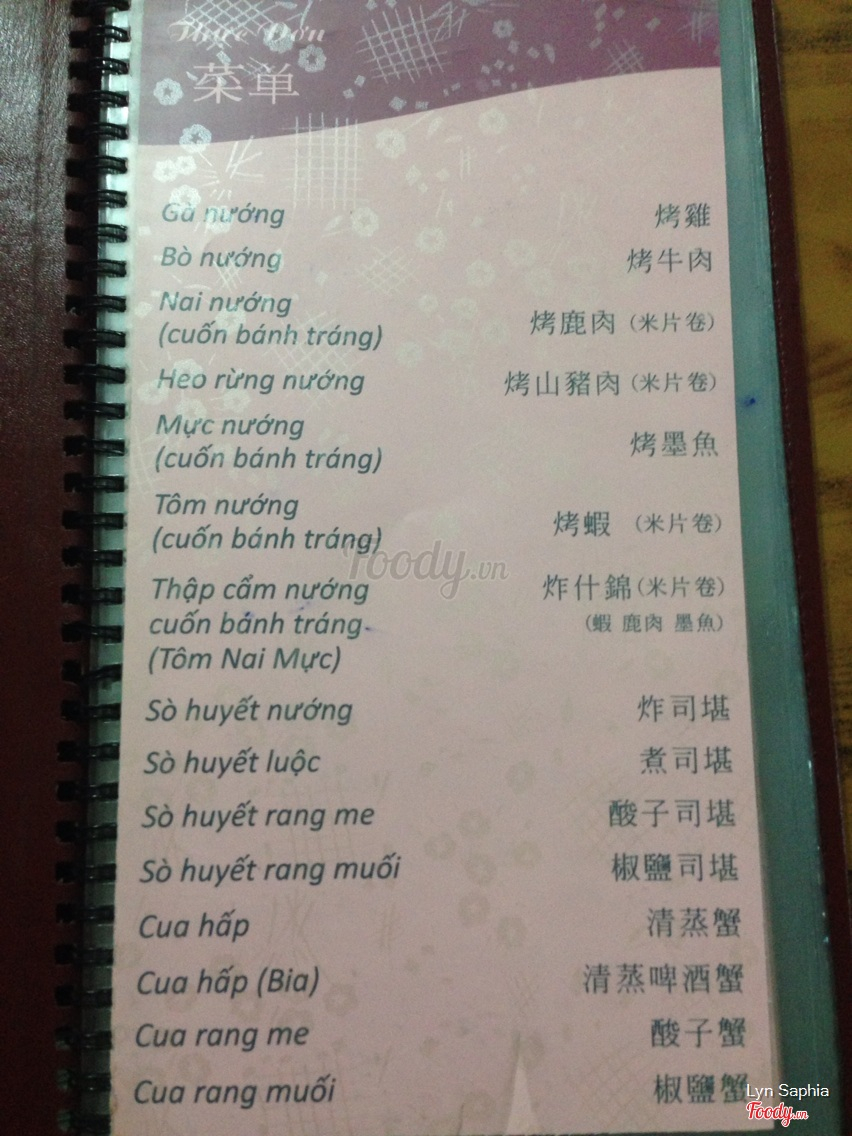 Thực Đơn
菜单
Gà nướng 烤雞
Bò nướng 烤牛肉
Nai nướng
(cuốn bánh tráng) 烤鹿肉 (米片卷)
Heo rừng nướng 烤山豬肉 (米片卷)
Mực nướng
(cuốn bánh tráng) 烤墨魚
Tôm nướng
(cuốn bánh tráng) 烤蝦 (米片卷)
Thập cẩm nướng 炸什錦 (米片卷)
cuốn bánh tráng (蝦 鹿肉 墨魚)
(Tôm Nai Mực)
Sò huyết nướng 炸司堪
Sò huyết luộc 煮司堪
Sò huyết rang me 酸子司堪
Sò huyết rang muối 椒鹽司堪
Cua hấp 清蒸蟹
Cua hấp (Bia) 清蒸啤酒蟹
Cua rang me 酸子蟹
Cua rang muối 椒鹽蟹
Foody.vn
Lyn Saphia
Foody.vn